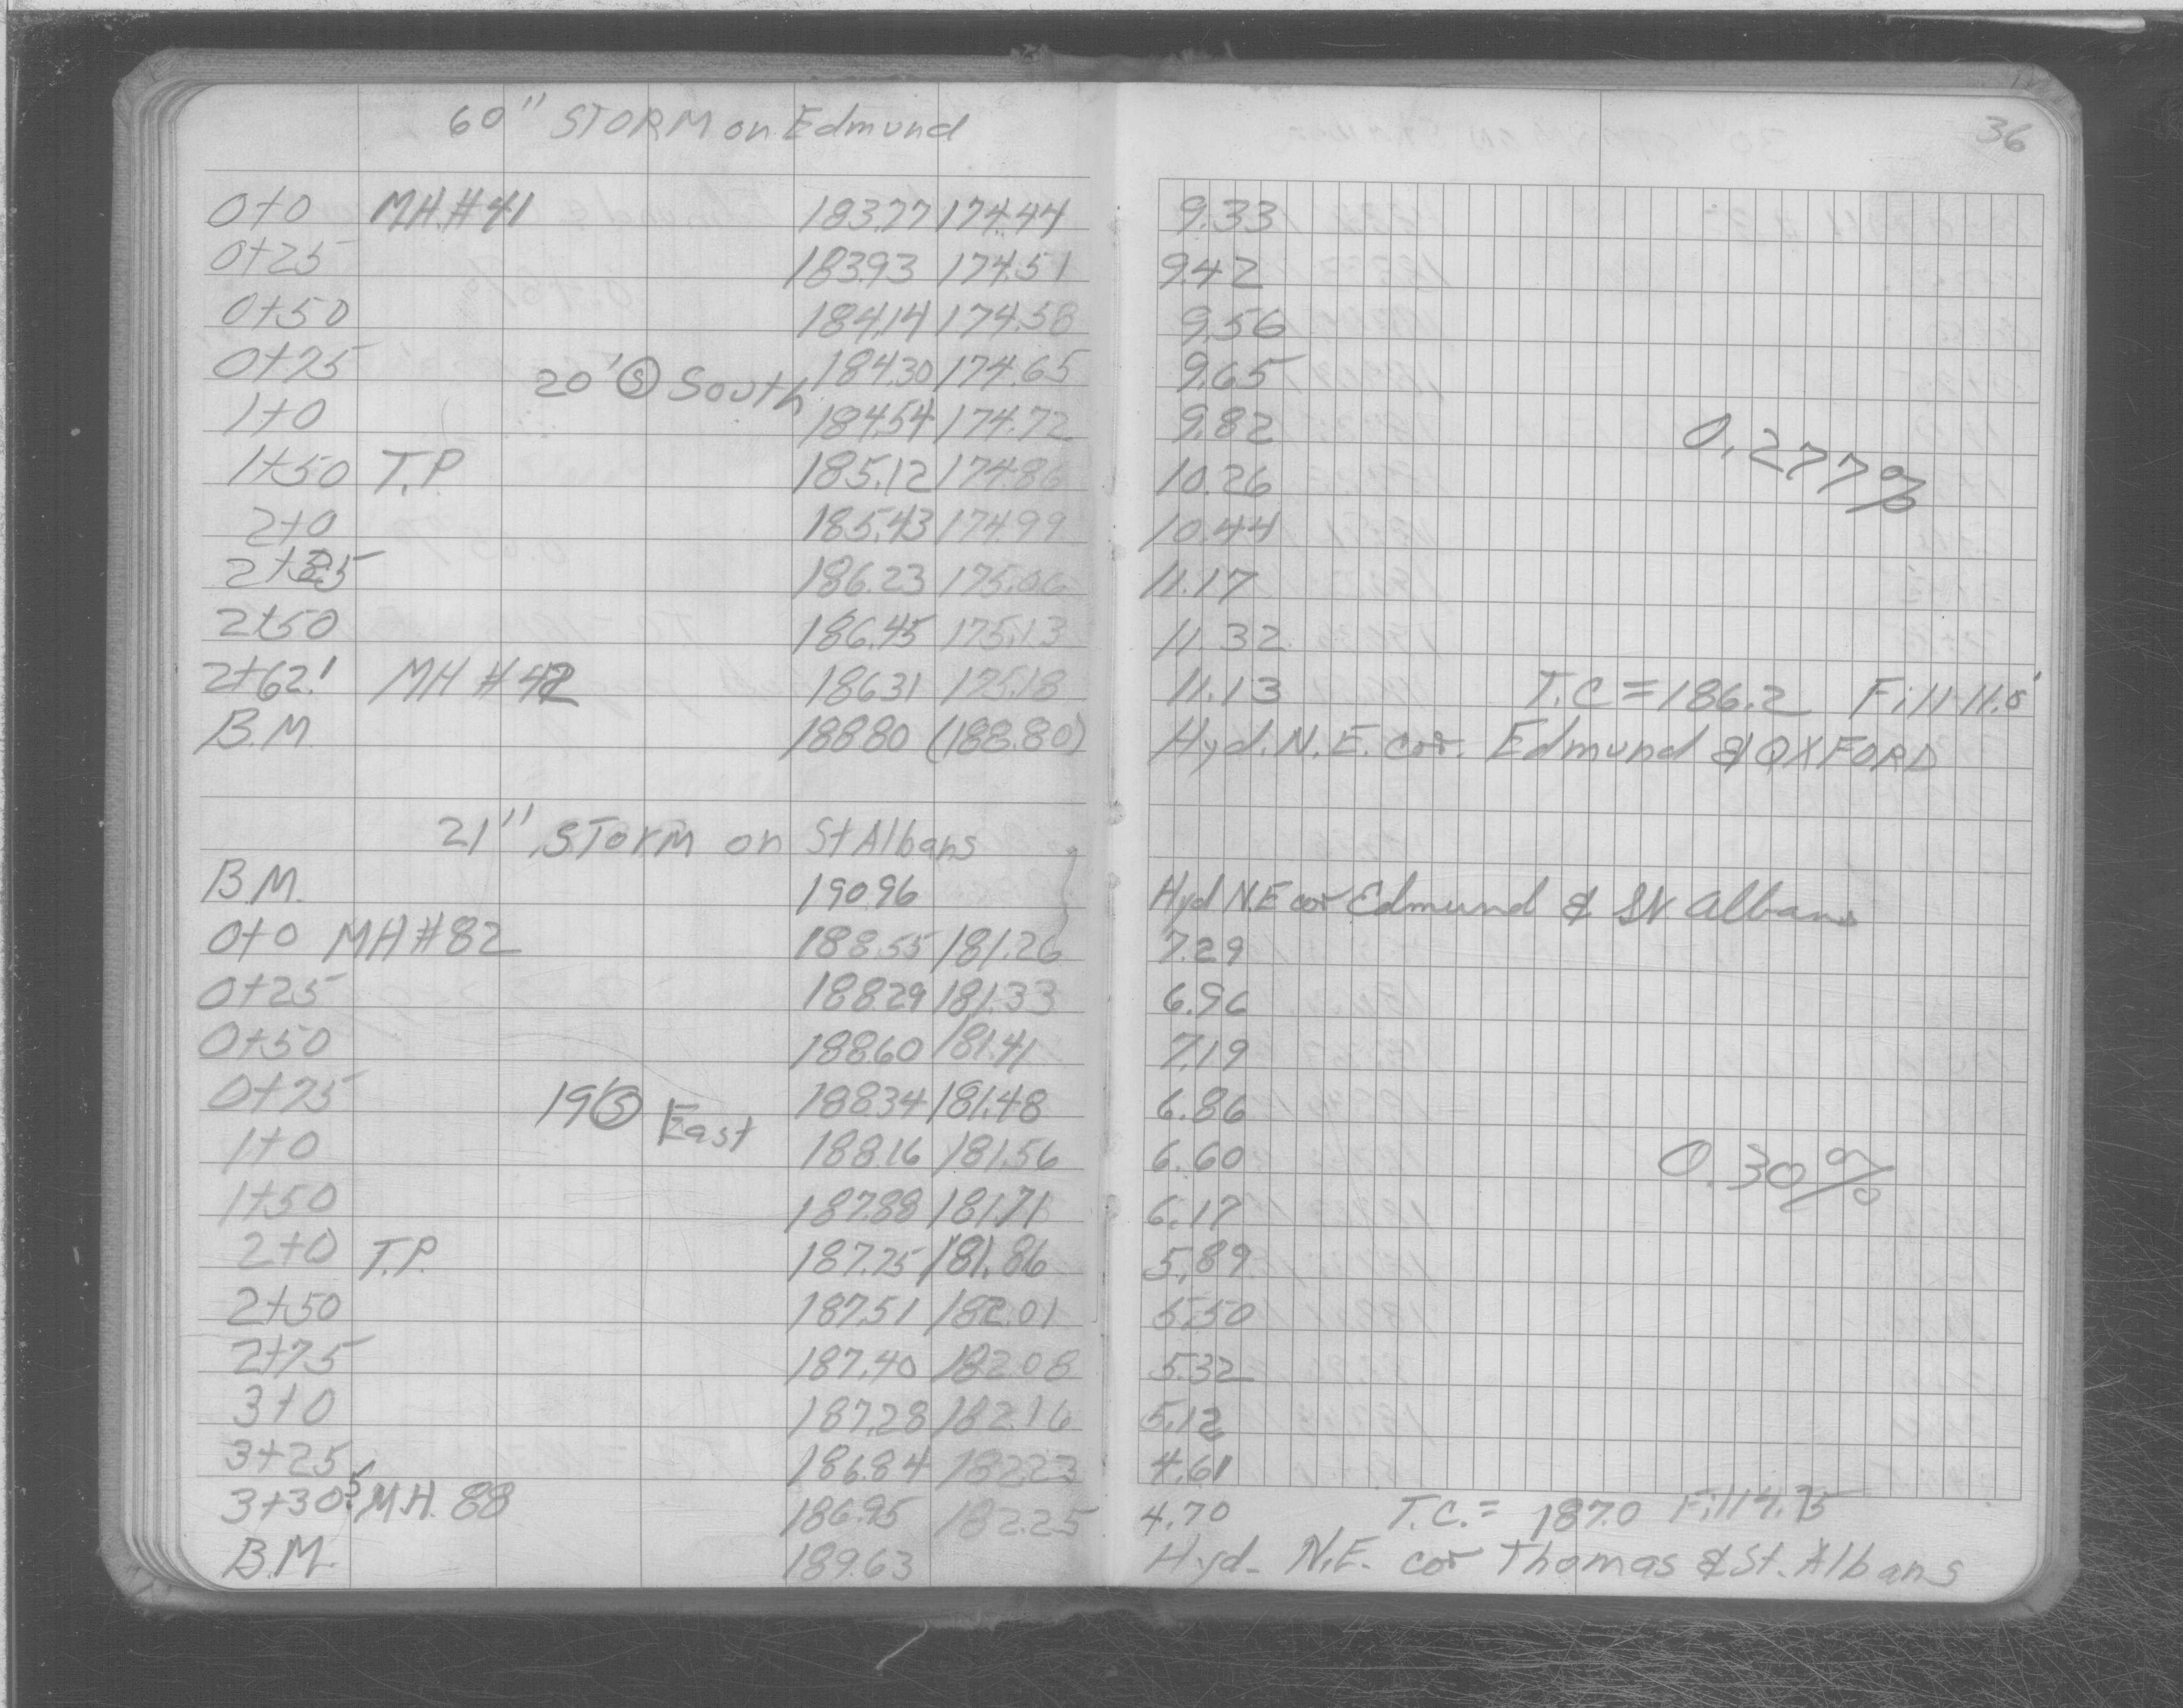 36
60" STORM on Edmund
0+0 MH.#41 183.77 174.44 9.33
0+25 183.93 174.51 9.42
0+50 184.14 174.58 9.56
0+75 184.30 174.65 9.65
20' Ⓢ South
1+0 184.54 174.72 9.82
0.277%
1+50 T.P 185.12 174.86 10.26
2+0 185.43 174.99 10.44
2+25 186.23 175.06 11.17
2+50 186.45 175.13 11.32
2+62.1 MH #42 186.31 175.18 11.13 T.C = 186.2 Fill 11.0'
B.M. 188.80 (188.80) Hyd. N.E. cor. Edmund & OXFORD
21" STorm on St Albans
B.M. 190.96 Hyd N.E cor Edmund & St Albans
0+0 MH #82 188.55 181.26 7.29
0+25 188.29 181.33 6.96
0+50 188.60 181.41 7.19
0+75 188.34 181.48 6.86
19' Ⓢ East
1+0 188.16 181.56 6.60
0.30%
1+50 187.88 181.71 6.17
2+0 T.P. 187.75 181.86 5.89
2+50 187.51 182.01 5.50
2+75 187.40 182.08 5.32
3+0 187.28 182.16 5.12
3+25 186.84 182.23 4.61
3+30.5 M.H. 88 186.95 182.25 4.70 T.C. = 187.0 Fill 4.75
B.M. 189.63 Hyd- N.E. cor Thomas & St. Albans